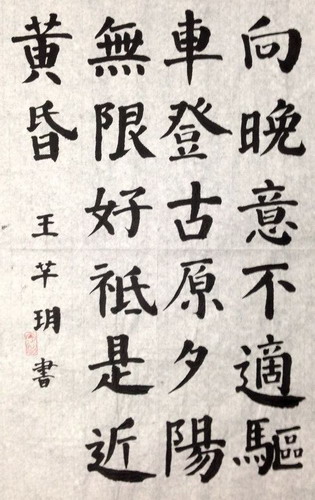 向晚意不適驅
車登古原夕陽
無限好祗是近
黃昏
王芊玥書